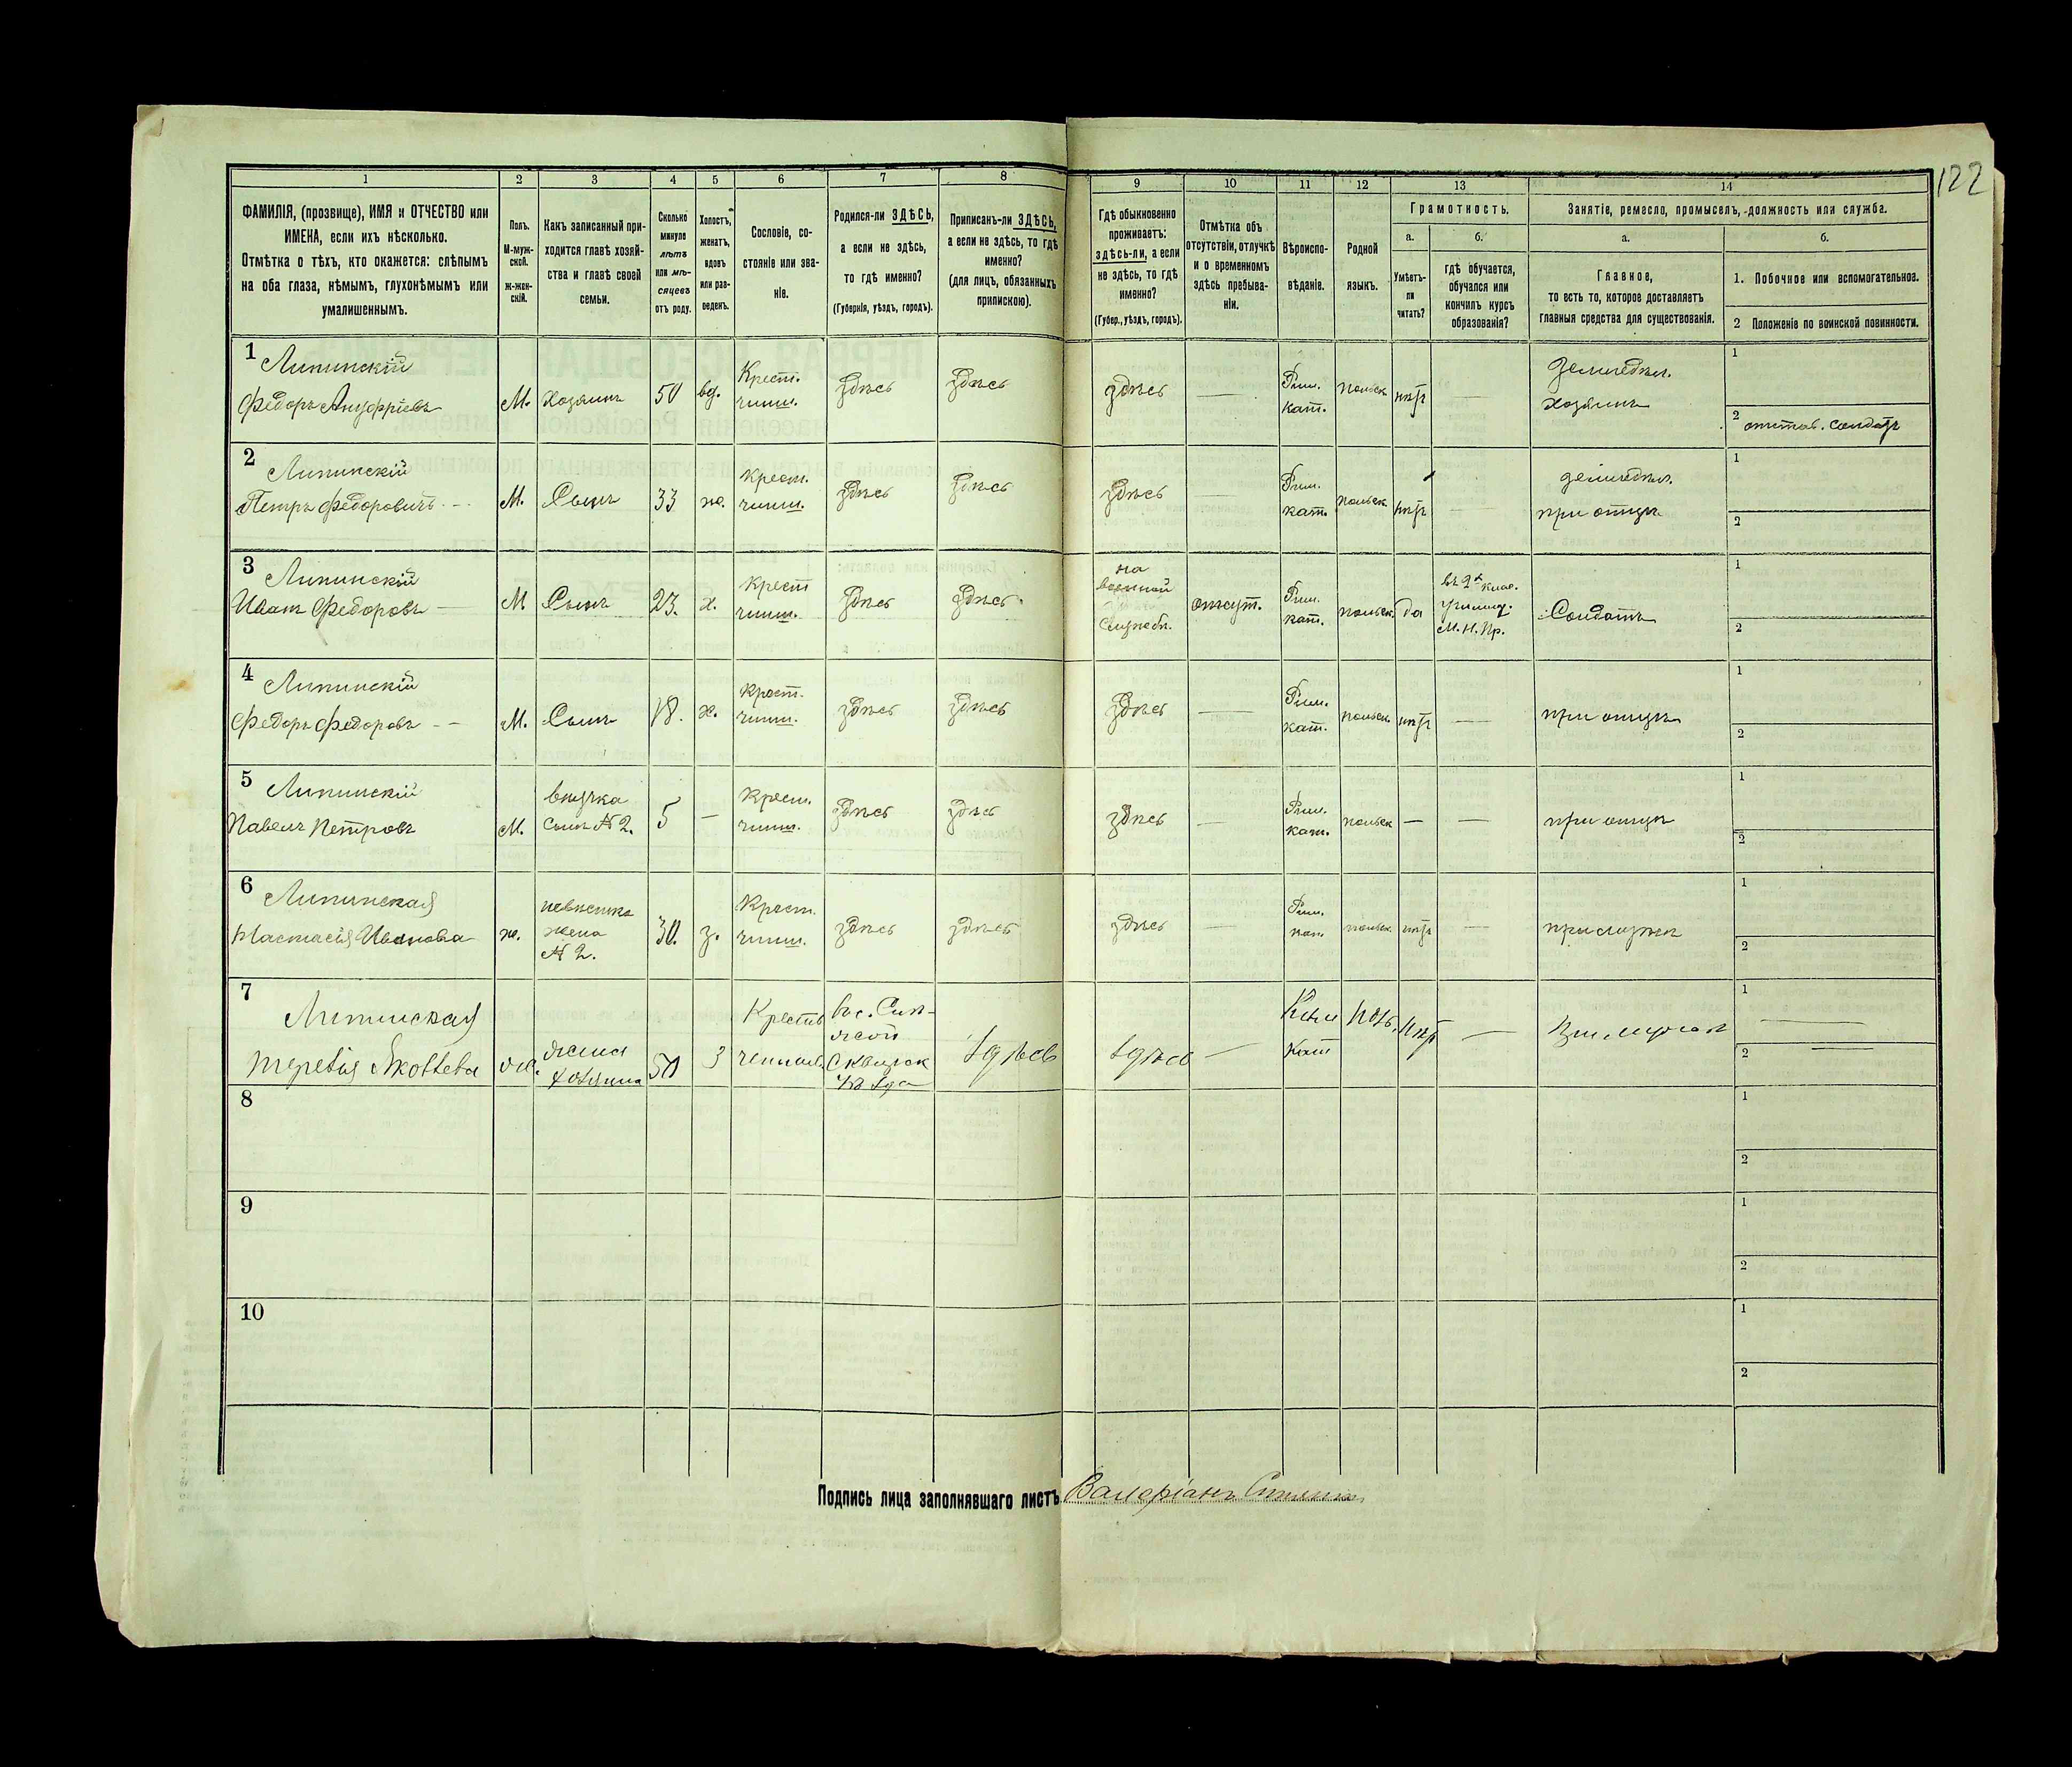 122
1 2 3 4 5 6 7 8 9 10 11 12 13 14
ФАМИЛІЯ, (прозвище), ИМЯ и ОТЧЕСТВО или
ИМЕНА, если ихъ нѣсколько.
Отмѣтка о тѣхъ, кто окажется: слѣпымъ
на оба глаза, нѣмымъ, глухонѣмымъ или
умалишеннымъ.
Полъ.
М-муж-
ской.
ж-жен-
скій.
Какъ записанный при-
ходится главѣ хозяй-
ства и главѣ своей
семьи.
Сколько
минуло
лѣтъ
или мѣ-
сяцевъ
отъ роду.
Холостъ,
женатъ,
вдовъ
или раз-
веденъ.
Сословіе, со-
стояніе или зва-
ніе.
Родился-ли ЗДѢСЬ,
а если не здѣсь,
то гдѣ именно?
(Губернія, уѣздъ, городъ).
Приписанъ-ли ЗДѢСЬ,
а если не здѣсь, то гдѣ
именно?
(для лицъ, обязанныхъ
припискою).
Гдѣ обыкновенно
проживаетъ:
здѣсь-ли, а если
не здѣсь, то гдѣ
именно?
(Губер., уѣздъ, городъ).
Отмѣтка объ
отсутствіи, отлучкѣ
и о временномъ
здѣсь пребыва-
ніи.
Вѣроиспо-
вѣданіе.
Родной
языкъ.
Грамотность.
а.
Умѣетъ-
ли
читать?
б.
гдѣ обучается,
обучался или
кончилъ курсъ
образованія?
Занятіе, ремесло, промыселъ, должность или служба.
а.
Главное,
то есть то, которое доставляетъ
главныя средства для существованія.
б.
1. Побочное или вспомогательное.
2 Положеніе по воинской повинности.
1
Липинскій
Федоръ Ануфріевъ
М.
Хозяинъ
50
вд.
Крест.
чинш.
здѣсь
здѣсь
здѣсь
—
Рим.
кат.
польск
нѣтъ
—
земледѣл.
хозяинъ
1
2 отстав. солдатъ
2
Липинскій
Петръ Федоровичъ
М.
Сынъ
33
ж.
Крест.
чинш.
здѣсь
здѣсь
здѣсь
—
Рим.
кат.
польск
нѣтъ
—
земледѣл.
при отцѣ
1
2
3
Липинскій
Иванъ Федоровъ —
М
Сынъ
23.
х.
Крест
чинш.
здѣсь
здѣсь
на
военной
службѣ.
отсут.
Рим.
кат.
польск.
да
въ 2х клас.
училищ.
М. Н. Пр.
Солдатъ
1
2
4
Липинскій
Федоръ Федоровъ —
М.
Сынъ
18.
х.
Крест.
чинш.
здѣсь
здѣсь
здѣсь
—
Рим.
кат.
польск
нѣтъ
—
при отцѣ
1
2
5
Липинскій
Павелъ Петровъ
М.
внучка
сынъ № 2.
5
—
Крест.
чинш.
здѣсь
здѣсь
здѣсь
—
Рим.
кат.
польск
—
—
при отцѣ
1
2
6
Липинская
Настасія Иванова
ж.
невѣстка
жена
№ 2.
30.
з.
Крест.
чинш.
здѣсь
здѣсь
здѣсь
—
Рим.
кат
польск
нѣтъ
—
при мужѣ
1
2
7
Липинская
Яковлева
ж.
жена
хозяина
50
З
Крестья
чинш.
Сквирск
уѣзда
здѣсь
здѣсь
—
Рим
Кат
пол.
нѣт
—
При мужѣ
1 —
2 —
8
1
2
9
1
2
10
1
2
Подпись лица заполнявшаго листъ Валеріанъ